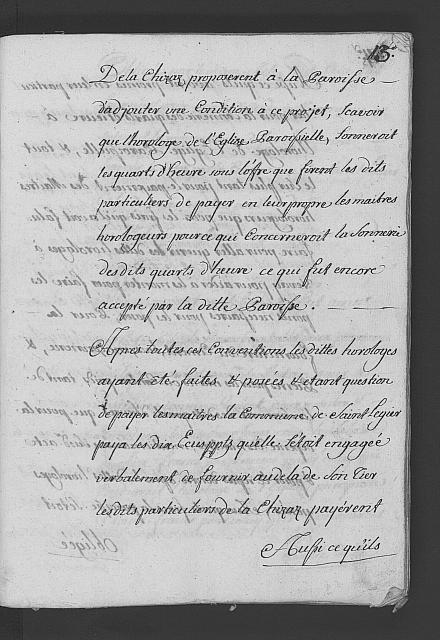 13.
De la Chiraz proposerent à la Paroisse
d'adjouter une Condition à ce projet, scavoir
que l'horologe de l'Eglise Paroissielle, Sonneroit
les quarts d'heure sous l'offre que firent les dits
particuliers de payer en leur propre les maitres
horologeurs pour ce qui Concerneroit la Sonnerie
des dits quarts d'heure ce qui fut encore
accepté par la ditte Paroisse.
Apres toutes ces Conventions les dittes horologes
ayant été faites & posées & etant question
de payer les maitres la Commune de Saint Legier
paya les dix Ecus ppts qu'elle s'etoit engagée
verbalement de fournir au dela de Son Tier
les dits particuliers de la Chiraz payérent
Aussi ce qu'ils